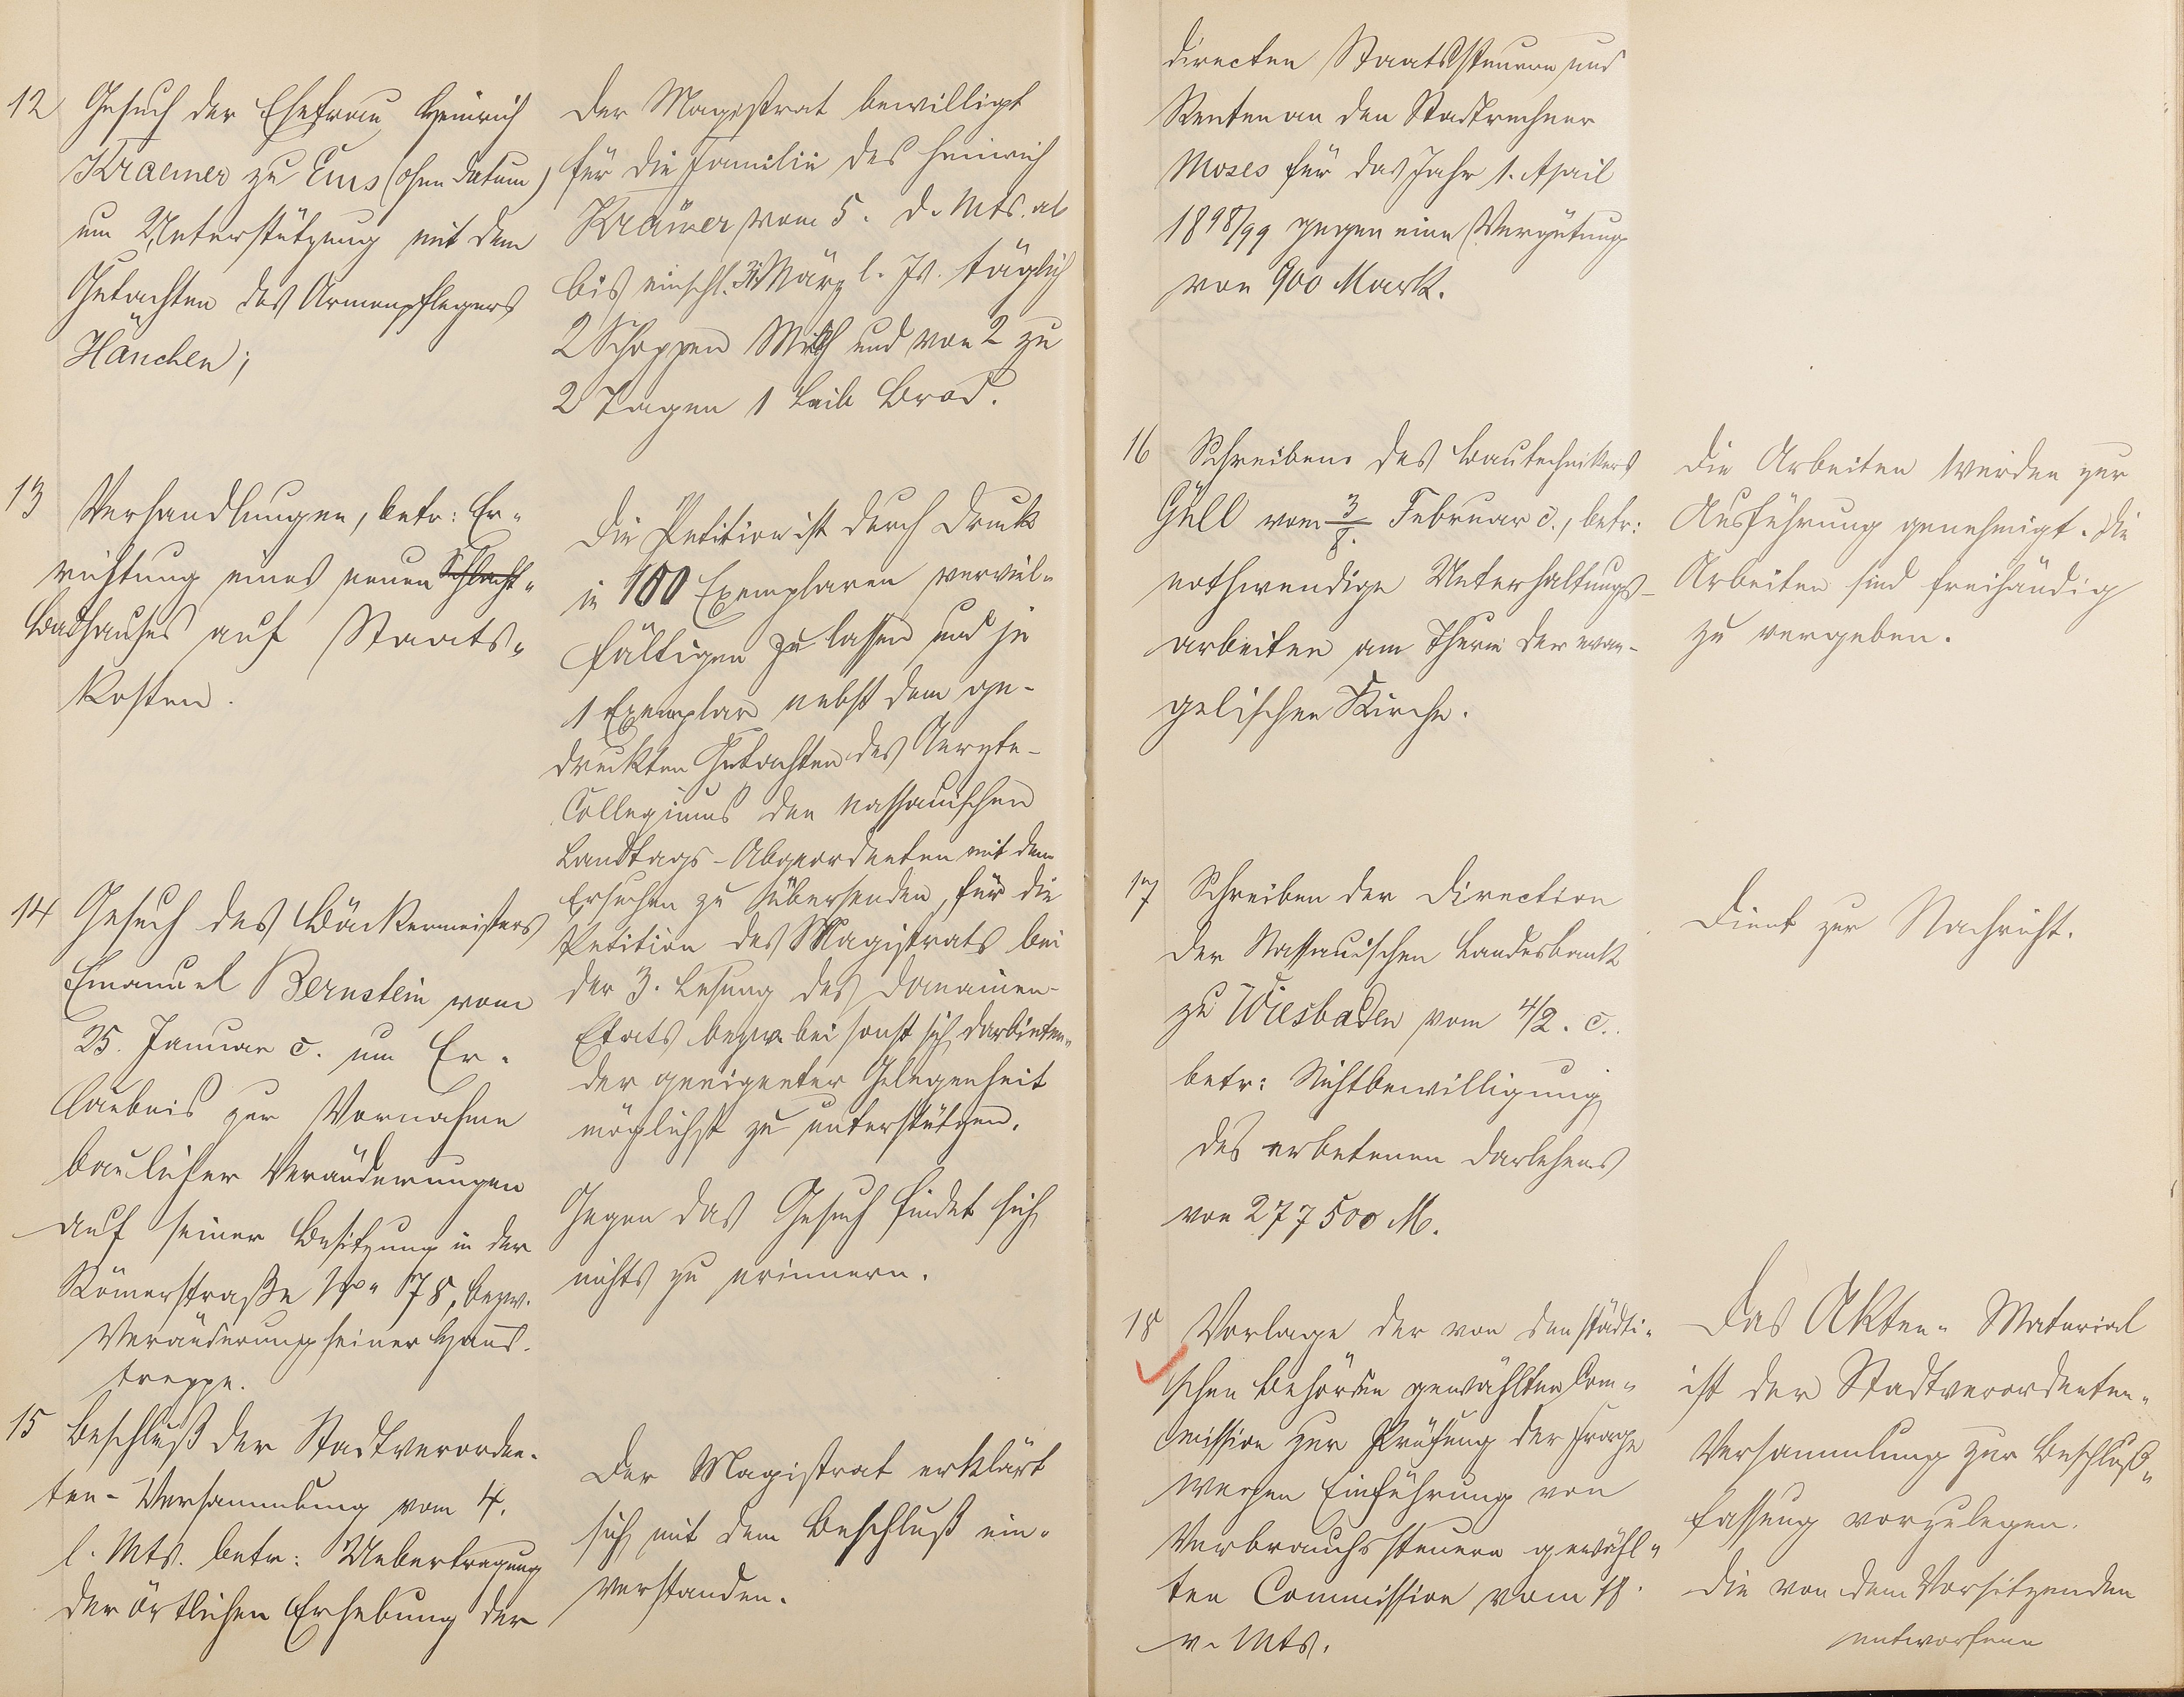 12 Gesuch der Ehefrau Heinrich
Kraemer zu Ems (ohne Datum)
um Unterstützung mit dem
Gutachten des Armenpflegers
Hänchen;
Der Magistrat bewilligt
für die Familie des Heinrich
Krämer vom 5. d. Mts. ab
bis einschl. 31. März l. Js. täglich
2 Schoppen Milch und von 2 zu
2 Tagen 1 Laib Brod.
13 Verhandlungen, betr: Er-
richtung eines neuen Schlacht-
Badhauses auf Staats-
kosten.
Die Petition ist durch Druck
in 100 Exemplaren verviel-
fältigen zu lassen und je
1 Exemplar nebst dem ge-
druckten Gutachten des Aerzte-
Collegiums den nassauischen
Landtags-Abgeordneten mit dem
Ersuchen zu übersenden, für die
Petition des Magistrats bei
der 3. Lesung des Domainen-
Etats bezw. bei sonst sich darbieten-
der geeigneter Gelegenheit
möglichst zu unterstützen.
14 Gesuch des Bäckermeisters
Emanuel Bernstein vom
25. Januar c. um Er-
laubnis zur Vornahme
baulicher Veränderungen
auf seiner Besitzung in der
Römerstraße No 78, bezw.
Veränderung seiner Haus-
treppe.
Gegen das Gesuch findet sich
nichts zu erinnern.
15 Beschluß der Stadtverordne-
ten-Versammlung vom 4.
l. Mts. betr: Uebertragung
der örtlichen Erhebung der
Der Magistrat erklärt
sich mit dem Beschluß ein-
verstanden.
directen Staatssteuern und
Renten an den Stadtrechner
Moses für das Jahr 1. April
1898/99 gegen eine Vergütung
von 900 Mark.
16 Schreiben des Bautechnikers
Güll vom 3/8. Februar c., betr:
nothwendige Unterhaltungs-
arbeiten am Thurm der evan-
gelischen Kirche.
Die Arbeiten werden zur
Ausführung genehmigt. Die
Arbeiten sind freihändig
zu vergeben.
17 Schreiben der Direction
der Nassauischen Landesbank
zu Wiesbaden vom 4/2. c.
betr: Nichtbewilligung
des erbetenen Darlehens
von 277500 M.
Dient zur Nachricht.
18 Vorlage der von den städti-
schen Behörden gewählten Com-
mission zur Prüfung der Frage
wegen Einführung von
Verbrauchssteuern gewähl-
ten Commission vom 18.
v. Mts.
Das Akten-Material
ist der Stadtverordneten-
Versammlung zur Beschluß-
fassung vorzulegen.
Die von dem Vorsitzenden
entworfene